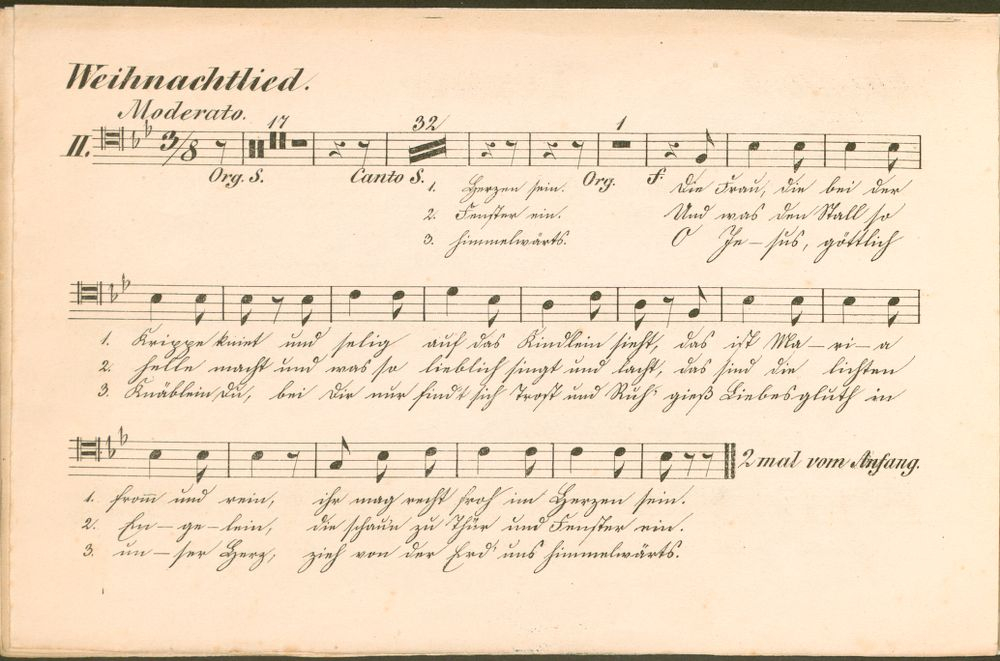 Weihnachtlied.
Moderato.
II. 3/8 17 32 1
Org. S. Canto S. Org. f.
1. Herzen sein. Die Frau, die bei der
2. Fenster ein. Und was den Stall so
3. himmelwärts. O Je-sus, göttlich
1. Krippe kniet und selig auf das Kindlein sieht, das ist Ma-ri-a
2. helle macht und was so lieblich singt und lacht, das sind die lichten
3. Knäblein Du, bei Dir nur find't sich Trost und Ruh' gieß Liebesgluth in
1. from̄ und rein, ihr mag recht froh im Herzen sein.
2. En-ge-lein, die schau'n zu Thür und Fenster ein.
3 un-ser Herz, zieh von der Erd' uns himmelwärts.
2 mal vom Anfang.